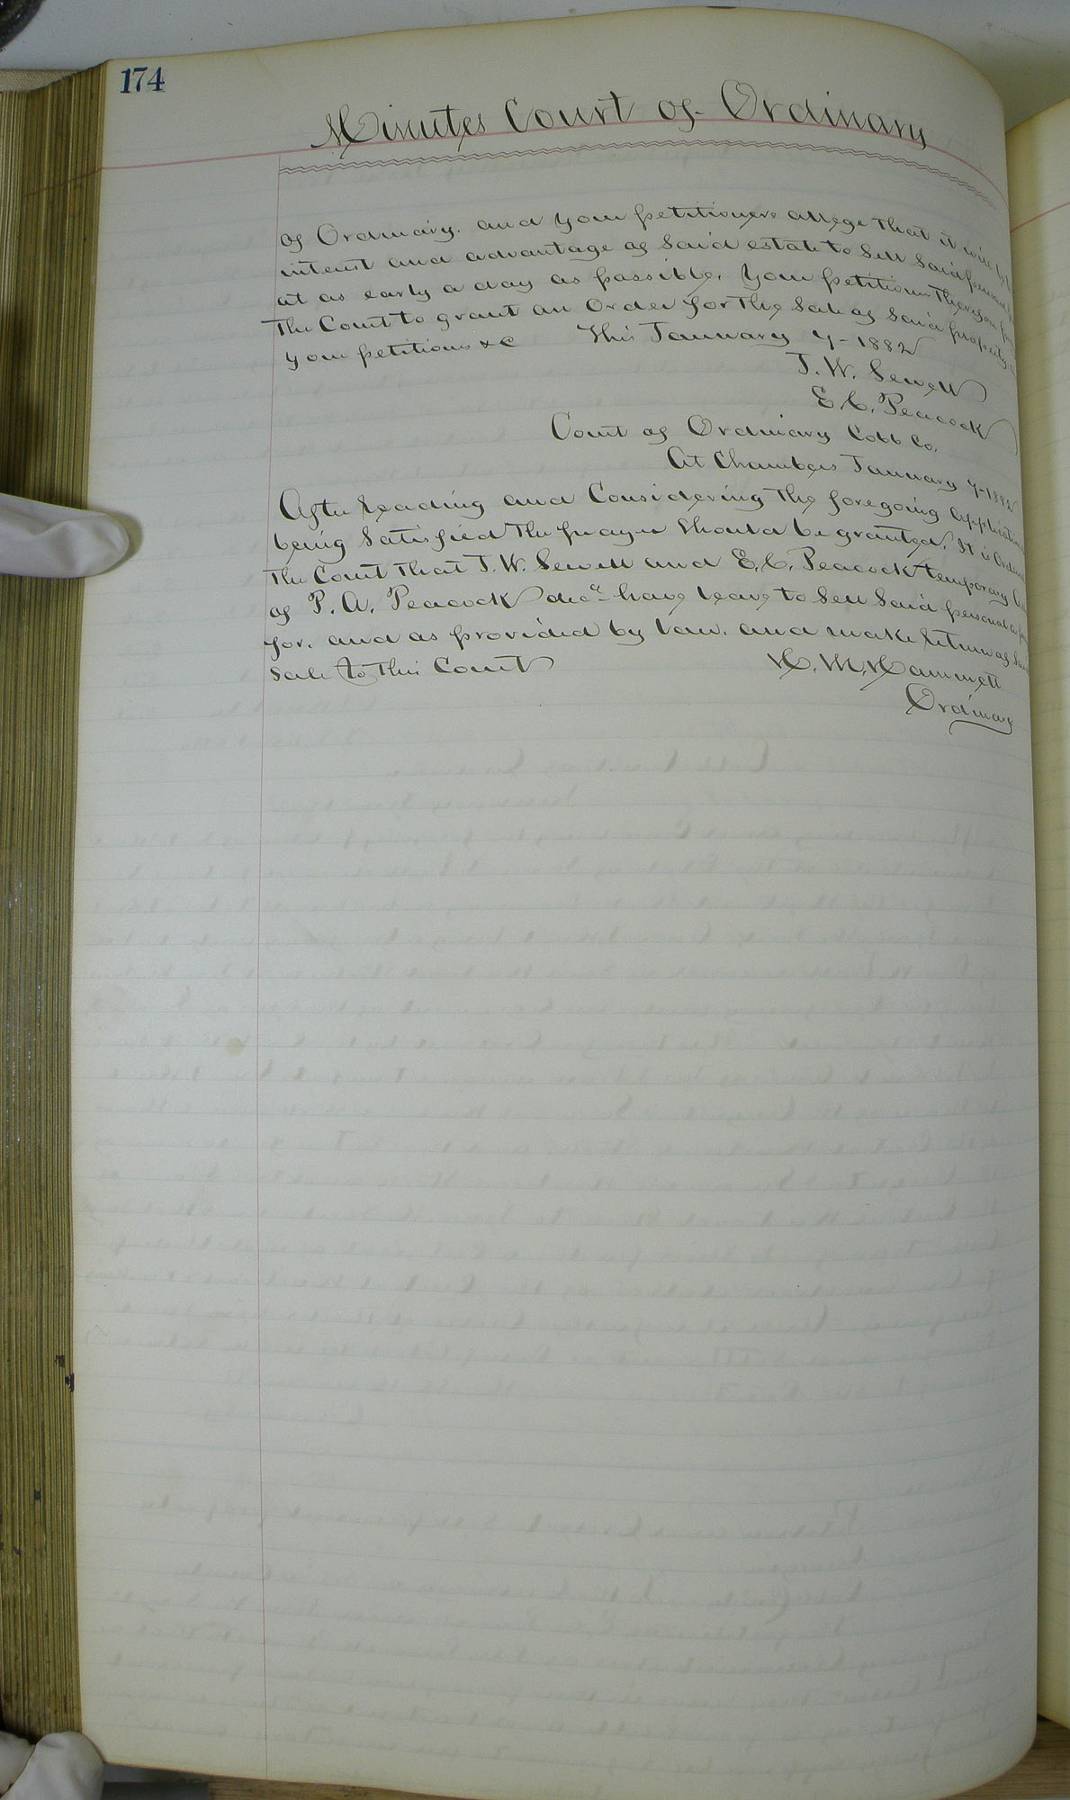 174
Minutes Court of Ordinary
of Ordinary. and your petitioners allege that it will be
interest and advantage of said estate to sell said
at as early a day as possible. Your petitioners therefore
The Court to grant an Order for the Sale of said property
your petitioners &c This January 7- 1882
J. W. Sewell
E. C. Peacock
Court of Ordinary Cobb Co.
At Chambers January 7- 1882
After reading and Considering the foregoing application
being satisfied the prayer should be granted. It is Ordered
The Court that J. W. Sewell and E. C. Peacock temporary
of P. A. Peacock decd have leave to sell said personal
for. and as provided by law. and make return of
sale to this Court H. M. Hammett
Ordinary